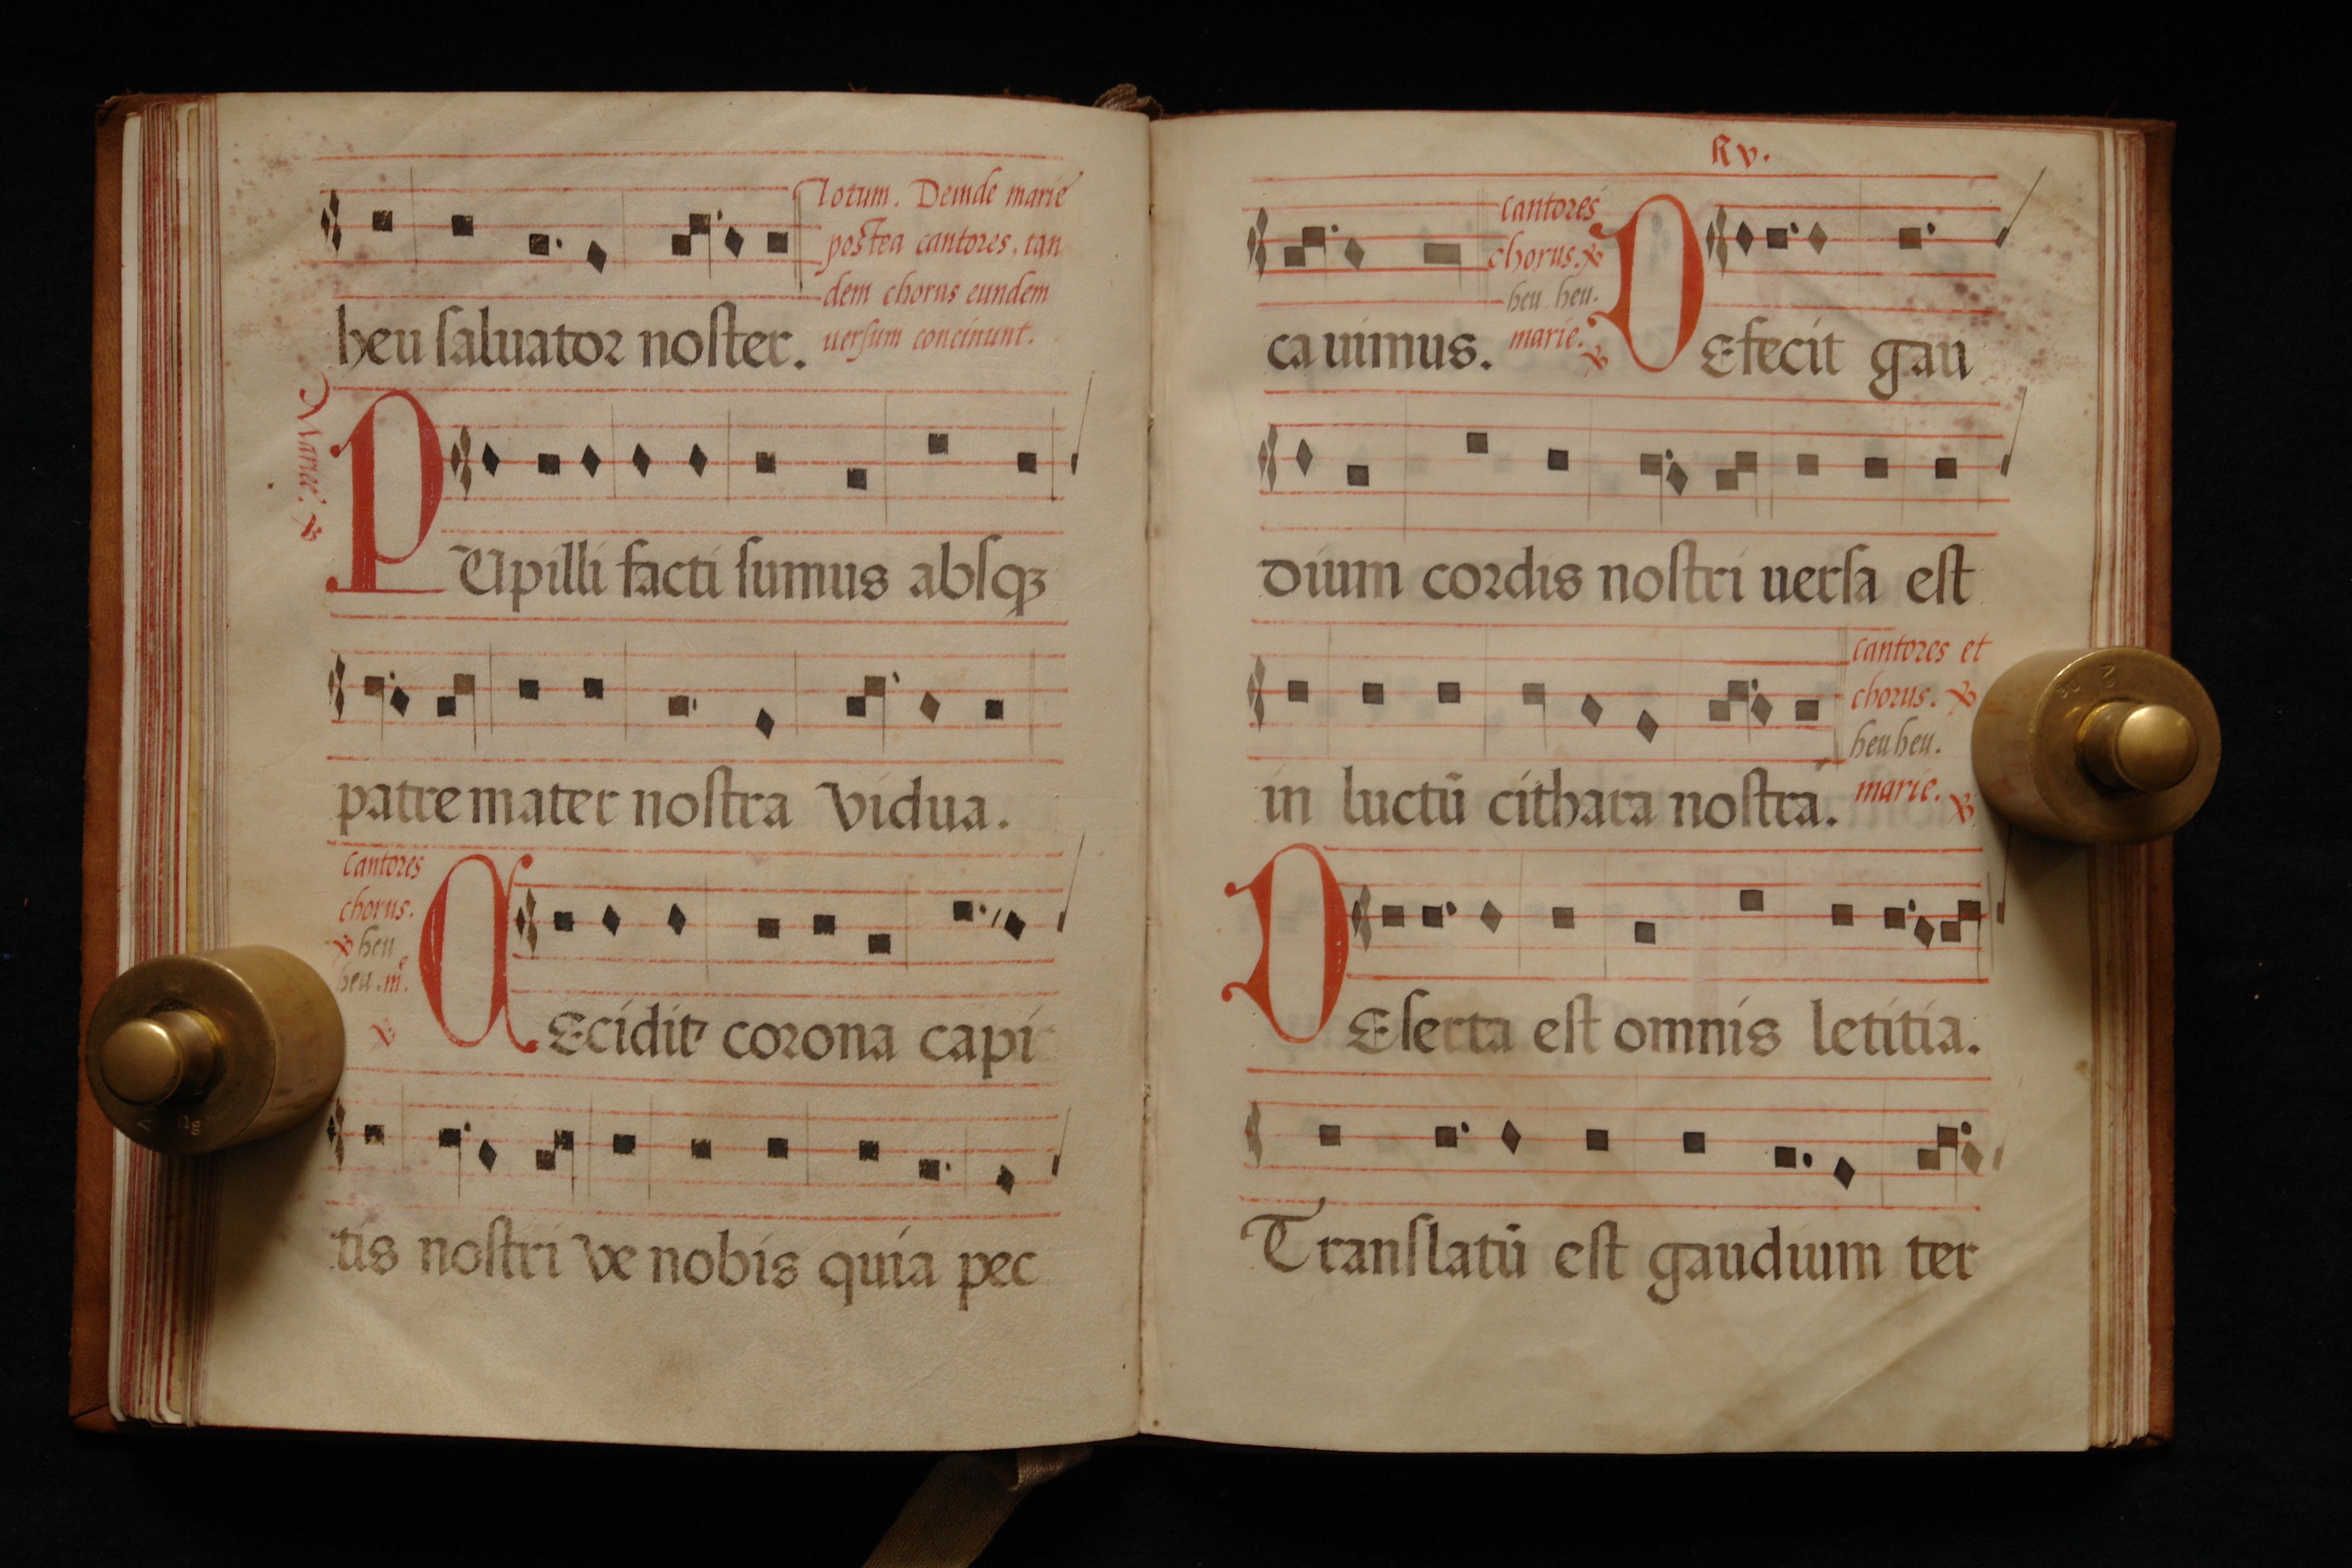 totum. Deinde marie
postea cantores, tan
dem chorus eundem
uersum concinunt.
heu ſaluator noſter.
Marie. ℟
PUpilli facti ſumus abſqꝫ
patre mater noſtra vidua.
Cantores
chorus.
℟ heu
heu. mͤ.
℟
CEcidit corona capi
tis noſtri ve nobis quia pec
xv.
cantores
chorus. ℟
heu heu.
marie. ℟
cauimus.
DEfecit gau
dium cordis noſtri uerſa eſt
cantores et
chorus. ℟
heu heu.
marie. ℟
in luctū cithara noſtra.
DEſerta eſt omnis letitia.
Tranſlatū eſt gaudium ter